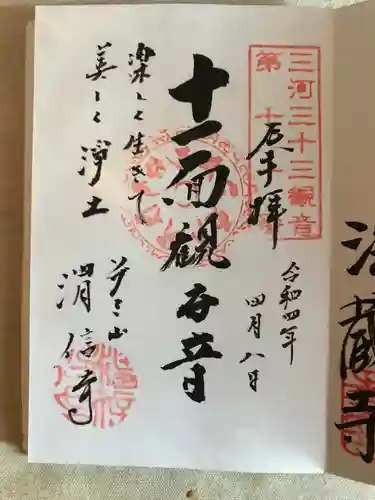 三河三十三観音
第十
奉拝
令和四年
四月八日
十一面観世音
楽しく生きて
美しく浄土
清信寺
法蔵寺